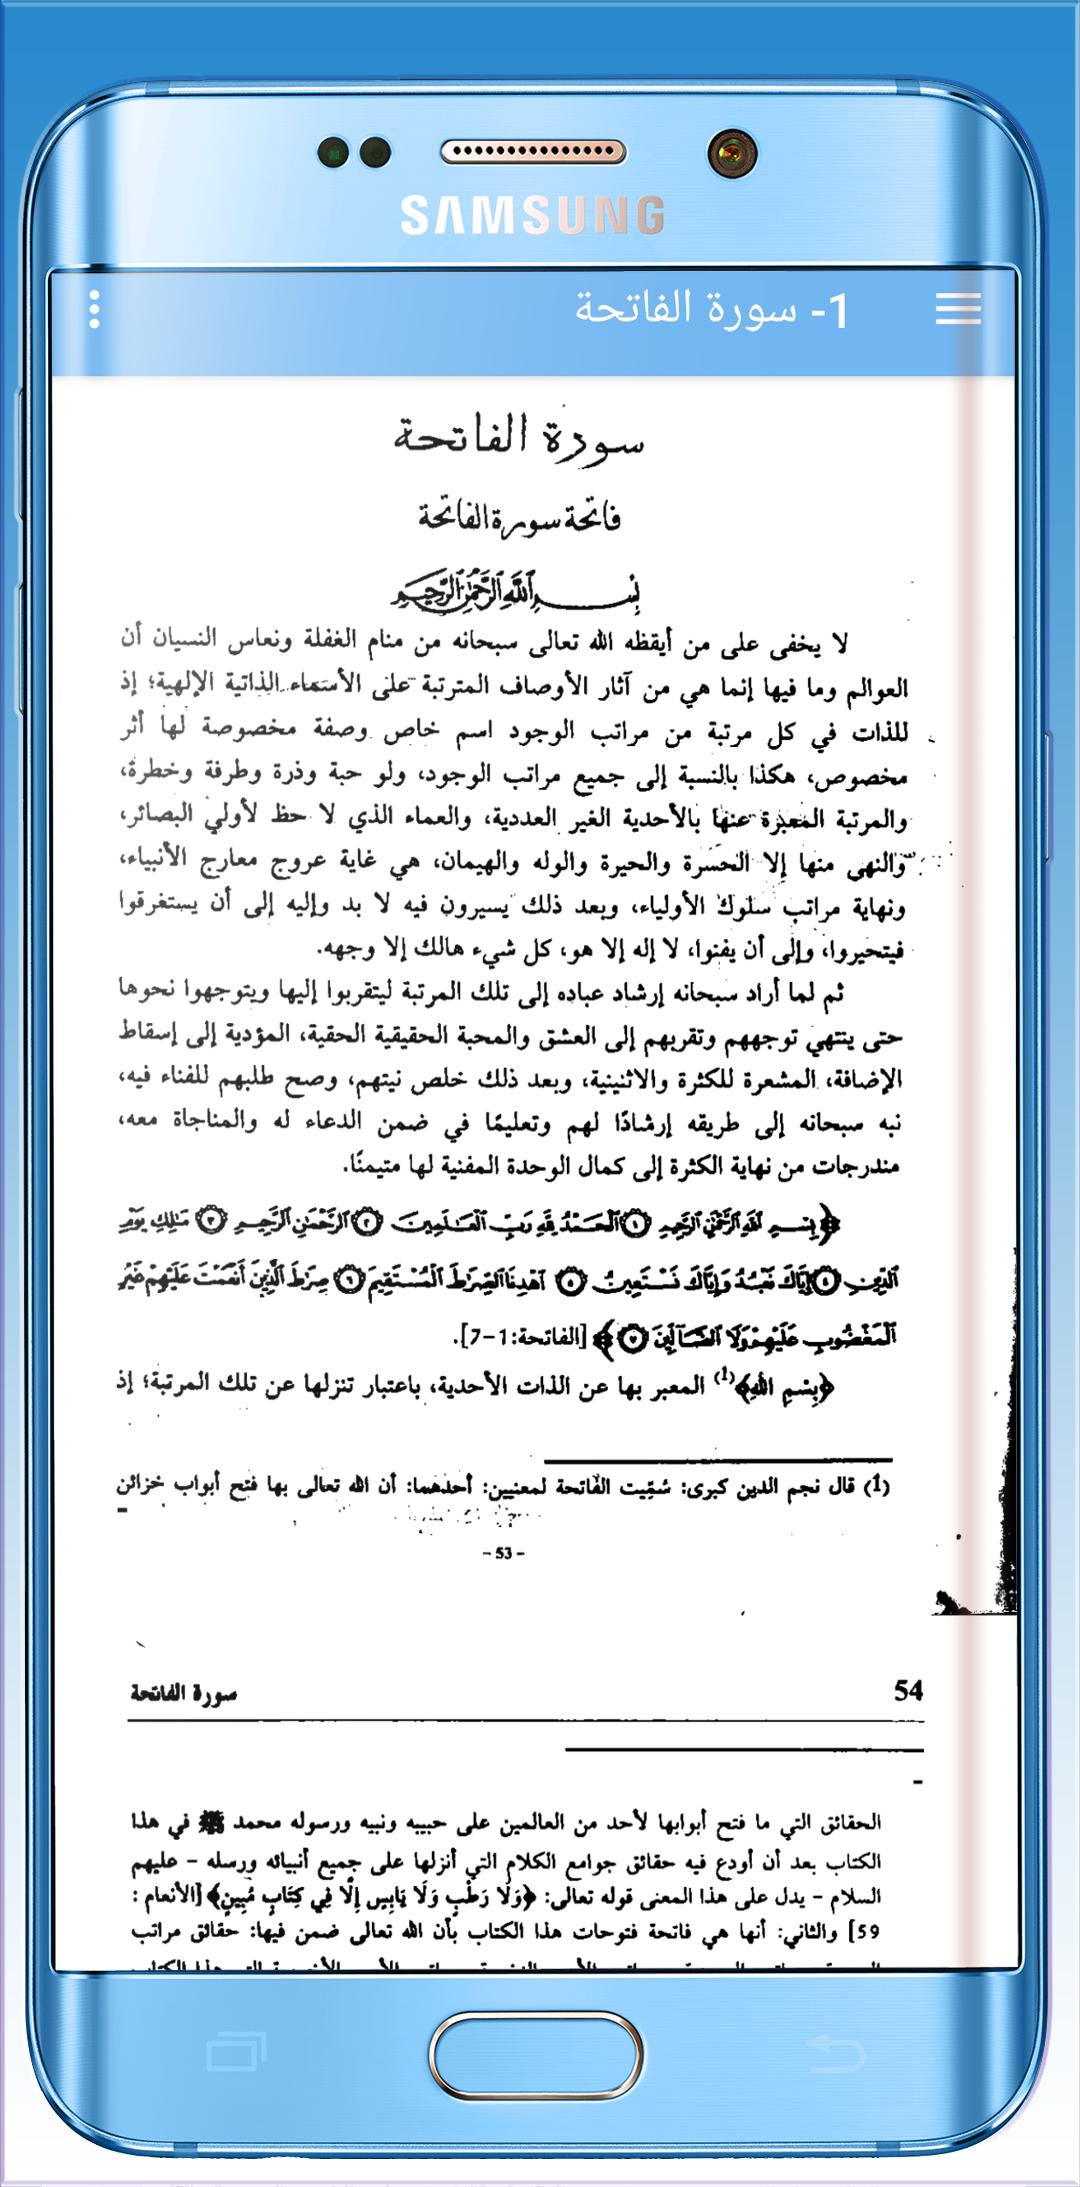 SAMSUNG
1- سورة الفاتحة
سورة الفاتحة
فاتحة سورة الفاتحة
بِسْمِ اللَّهِ الرَّحْمَٰنِ الرَّحِيمِ
لا يخفى على من أيقظه الله تعالى سبحانه من منام الغفلة ونعاس النسيان أن
العوالم وما فيها إنما هي من آثار الأوصاف المترتبة على الأسماء الذاتية الإلهية؛ إذ
للذات في كل مرتبة من مراتب الوجود اسم خاص وصفة مخصوصة لها أثر
مخصوص، هكذا بالنسبة إلى جميع مراتب الوجود، ولو حبة وذرة وطرفة وخطرة،
والمرتبة المعبرة عنها بالأحدية الغير العددية، والعماء الذي لا حظ لأولي البصائر،
والنهى منها إلا الحسرة والحيرة والوله والهيمان، هي غاية عروج معارج الأنبياء،
ونهاية مراتب سلوك الأولياء، وبعد ذلك يسيرون فيه لا بد وإليه إلى أن يستغرقوا
فيتحيروا، وإلى أن يفنوا، لا إله إلا هو، كل شيء هالك إلا وجهه.
ثم لما أراد سبحانه إرشاد عباده إلى تلك المرتبة ليتقربوا إليها ويتوجهوا نحوها
حتى ينتهي توجههم وتقربهم إلى العشق والمحبة الحقيقية الحقية، المؤدية إلى إسقاط
الإضافة، المشعرة للكثرة والاثنينية، وبعد ذلك خلص نيتهم، وصح طلبهم للفناء فيه،
نبه سبحانه إلى طريقه إرشادًا لهم وتعليمًا في ضمن الدعاء له والمناجاة معه،
مندرجات من نهاية الكثرة إلى كمال الوحدة المفنية لها متيمنًا.
﴿بِسْمِ اللَّهِ الرَّحْمَٰنِ الرَّحِيمِ ١ الْحَمْدُ لِلَّهِ رَبِّ الْعَالَمِينَ ٢ الرَّحْمَٰنِ الرَّحِيمِ ٣ مَالِكِ يَوْمِ
الدِّينِ ٤ إِيَّاكَ نَعْبُدُ وَإِيَّاكَ نَسْتَعِينُ ٥ اهْدِنَا الصِّرَاطَ الْمُسْتَقِيمَ ٦ صِرَاطَ الَّذِينَ أَنْعَمْتَ عَلَيْهِمْ غَيْرِ
الْمَغْضُوبِ عَلَيْهِمْ وَلَا الضَّالِّينَ ٧﴾ [الفاتحة:1-7].
﴿بِسْمِ اللهِ﴾(1) المعبر بها عن الذات الأحدية، باعتبار تنزلها عن تلك المرتبة؛ إذ
(1) قال نجم الدين كبرى: سُمِّيت الفاتحة لمعنيين: أحدهما: أن الله تعالى بها فتح أبواب خزائن
- 53 -
54
سورة الفاتحة
الحقائق التي ما فتح أبوابها لأحد من العالمين على حبيبه ونبيه ورسوله محمد ﷺ في هذا
الكتاب بعد أن أودع فيه حقائق جوامع الكلام التي أنزلها على جميع أنبيائه ورسله - عليهم
السلام - يدل على هذا المعنى قوله تعالى: ﴿وَلَا رَطْبٍ وَلَا يَابِسٍ إِلَّا فِي كِتَابٍ مُّبِينٍ﴾ [الأنعام :
59] والثاني: أنها هي فاتحة فتوحات هذا الكتاب بأن الله تعالى ضمن فيها: حقائق مراتب